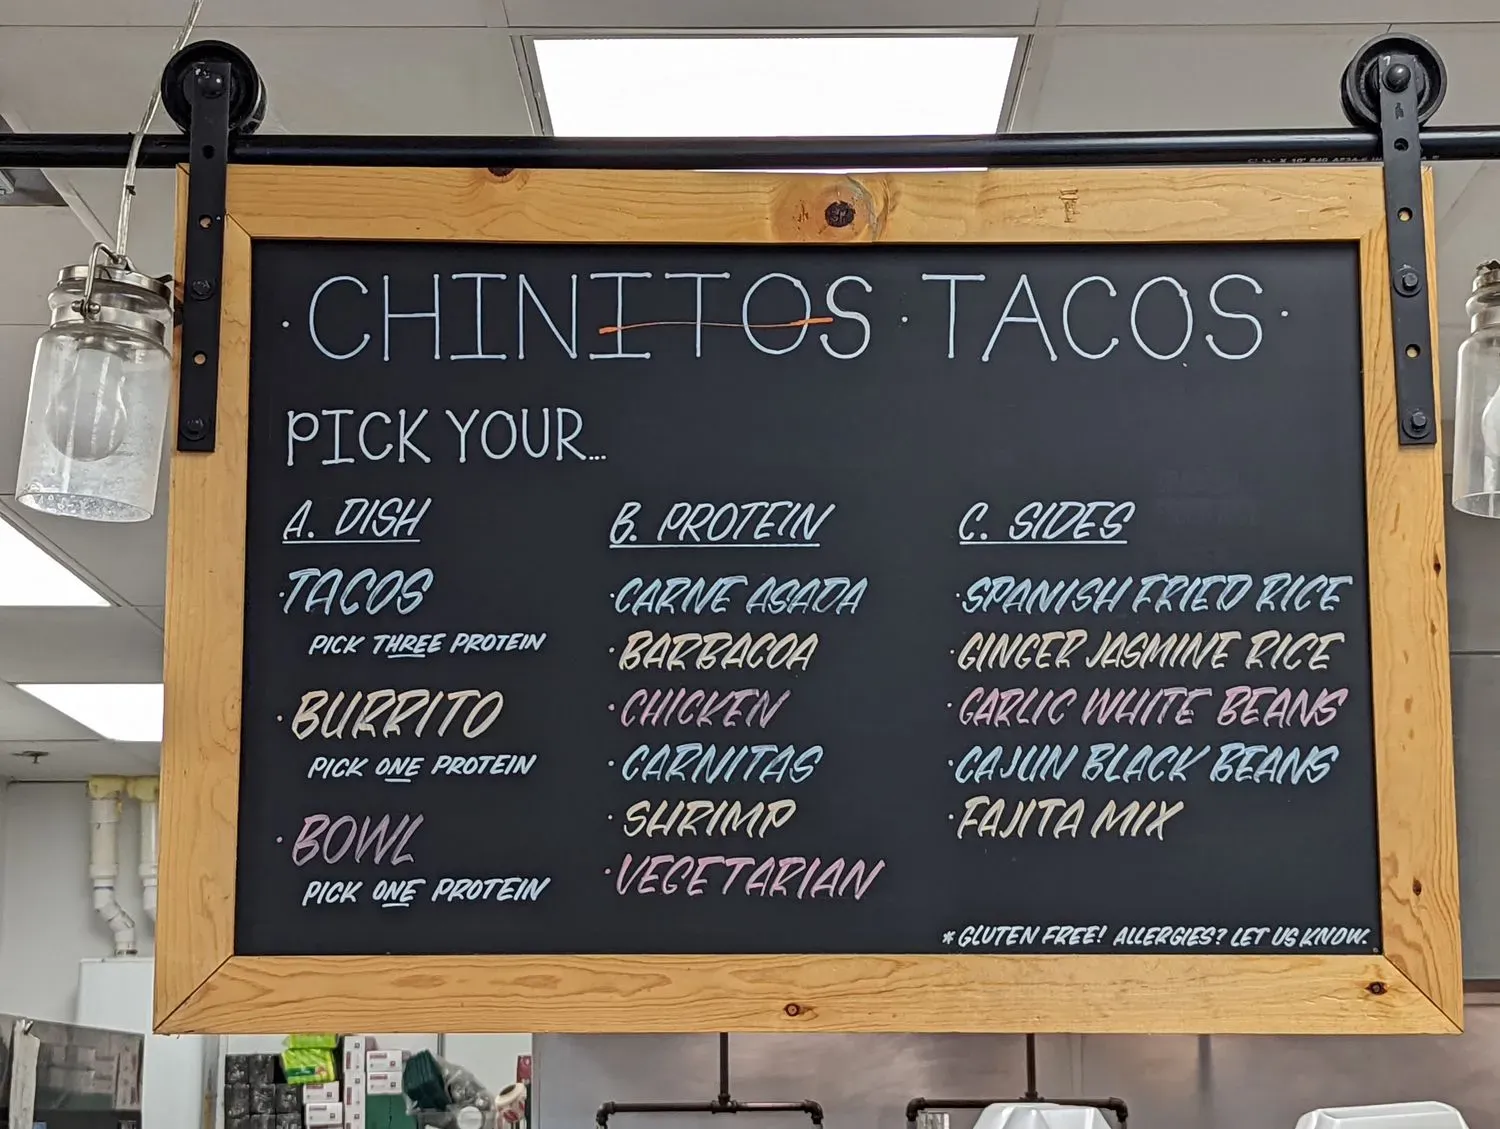 · CHINITOS · TACOS ·
PICK YOUR...
A. DISH
· TACOS
PICK THREE PROTEIN
· BURRITO
PICK ONE PROTEIN
· BOWL
PICK ONE PROTEIN
B. PROTEIN
· CARNE ASADA
· BARBACOA
· CHICKEN
· CARNITAS
· SHRIMP
· VEGETARIAN
C. SIDES
· SPANISH FRIED RICE
· GINGER JASMINE RICE
· GARLIC WHITE BEANS
· CAJUN BLACK BEANS
· FAJITA MIX
* GLUTEN FREE! ALLERGIES? LET US KNOW.